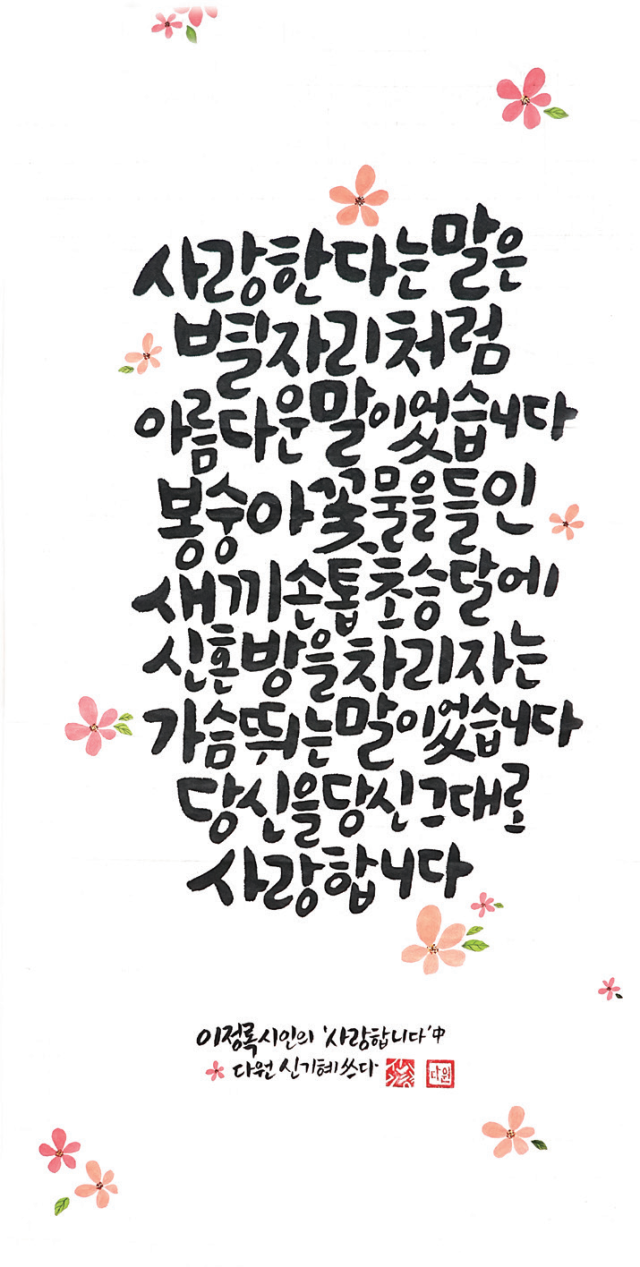 사랑한다는 말은
별자리처럼
아름다운 말이었습니다
봉숭아 꽃물을 들인
새끼손톱 초승달에
신혼방을 차리자는
가슴 뛰는 말이었습니다
당신을 당신 그대로
사랑합니다
이정록 시인의 '사랑합니다' 中
다원 신기혜 쓰다
다원